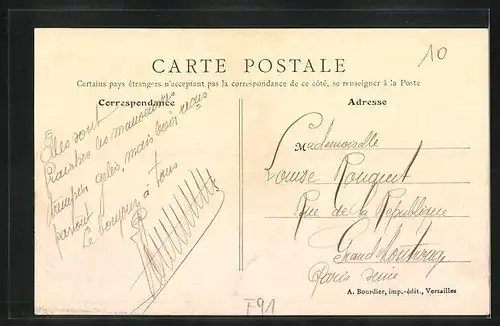 10
CARTE POSTALE
Certains pays étrangers n'acceptant pas la correspondance de ce côté, se renseigner à la Poste
Correspondance
Elles sont
les manoeuvres
gelés, mais
partout
Le bonjour à tous
Adresse
Mademoiselle
Louise Rouquet
Rue de la République
Grand Montrouge
Paris Seine
A. Bourdier, imp.-édit., Versailles
F91